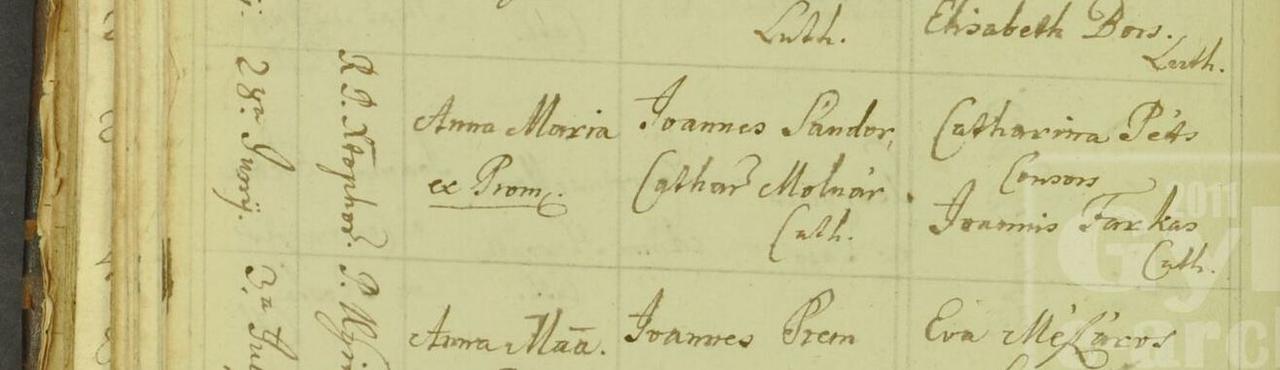 Luth.
Elisabeth Bors.
Luth.
28a Junij.
R. P. Xtophor.
Anna Maria
ex Prom.
Joannes Sandor,
Cathar Molnár
Cath.
Catharina Péts
Consors
Joannis Farkas
Cath.
3.a
P.
Anna Maa.
Joannes Prem
Eva Mészáros
2011